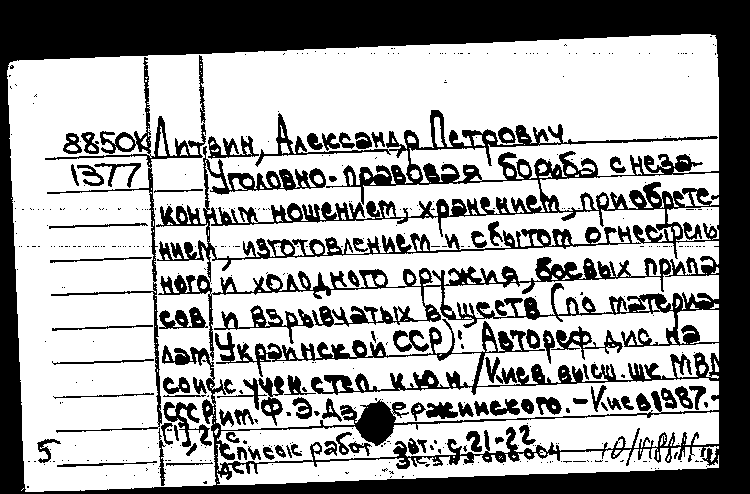 8850К Литвин, Александр Петрович.
1377 Уголовно-правовая борьба с неза-
конным ношением, хранением, приобрете-
нием, изготовлением и сбытом огнестрель
ного и холодного оружия, боевых припа-
сов и взрывчатых веществ (по материа-
лам Украинской ССР): Автореф. дис. на
соиск. учен. степ. к.ю.н. / Киев. высш. шк. МВД
СССР им. Ф.Э. Дзержинского. - Киев, 1987. -
[1], 22 с.
5 Список работ авт.: с. 21-22
ДСП Экз. № 000004